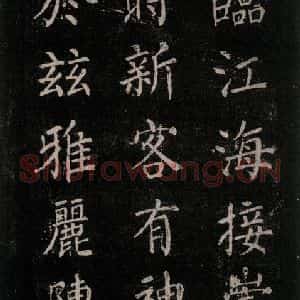 臨江海接
時新客有神
於茲雅麗陳
ShufaWang.CN